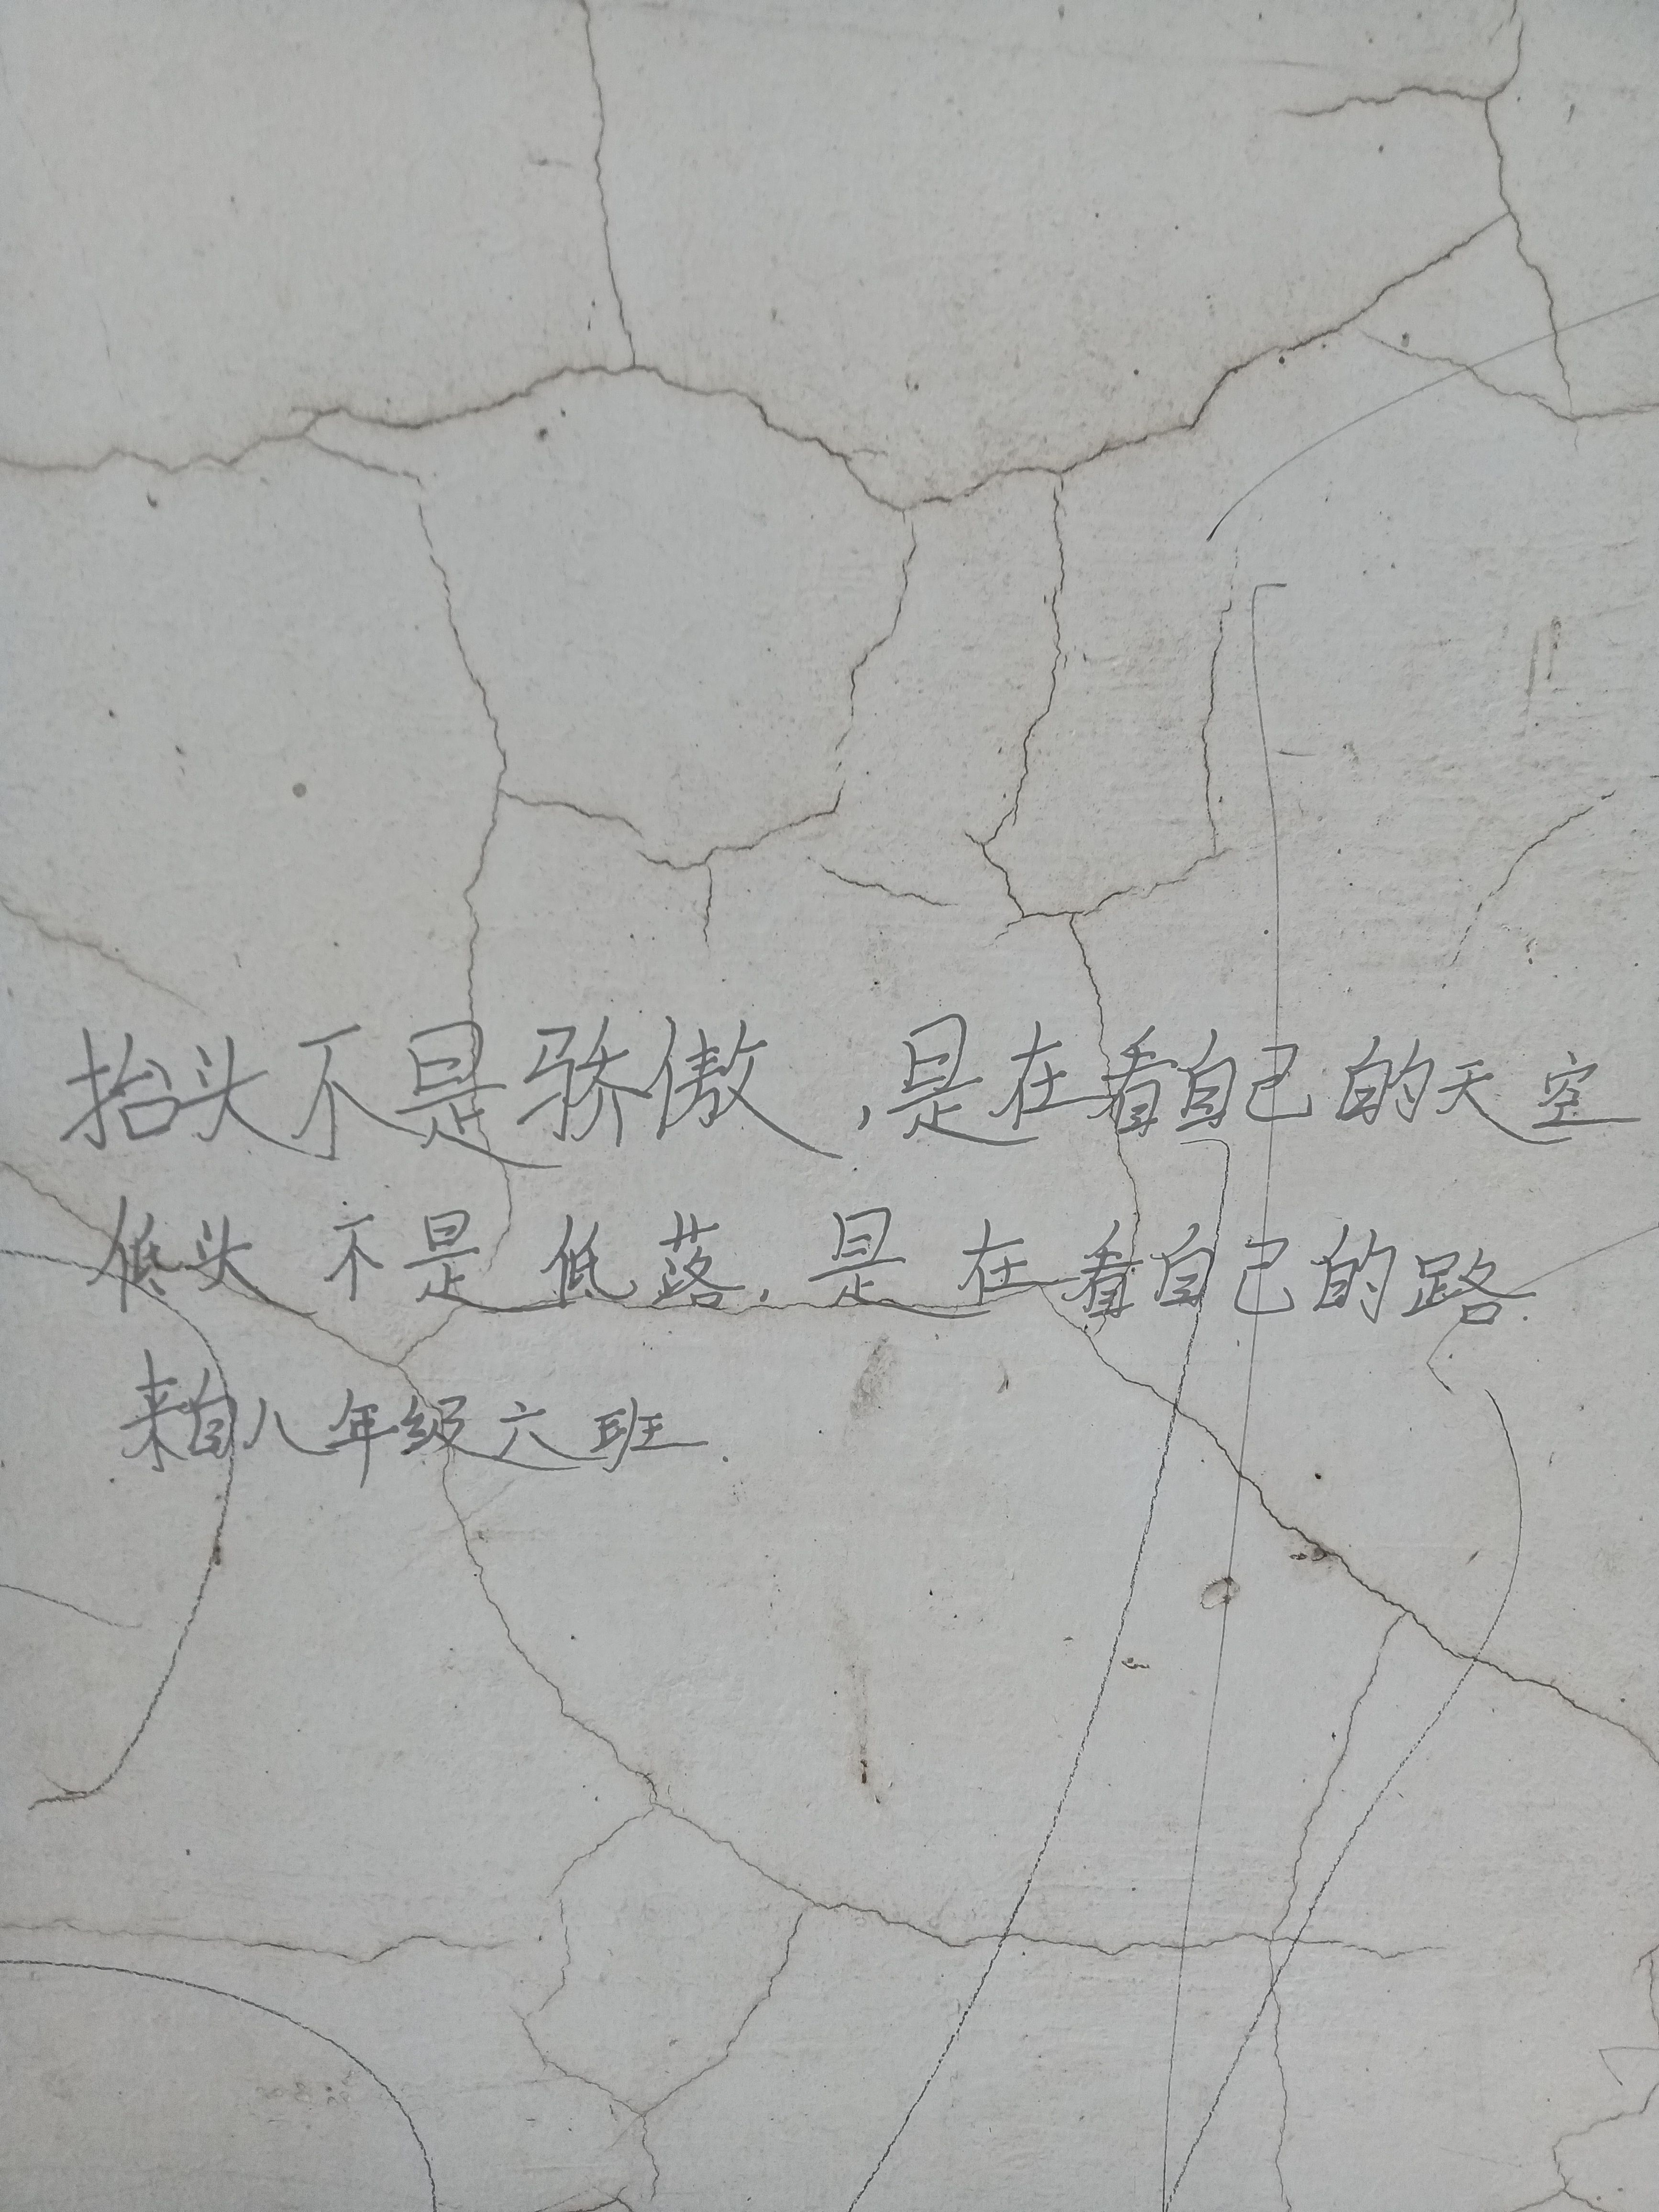 抬头不是骄傲,是在看自己的天空
低头不是低落,是在看自己的路.
来自八年级六班.